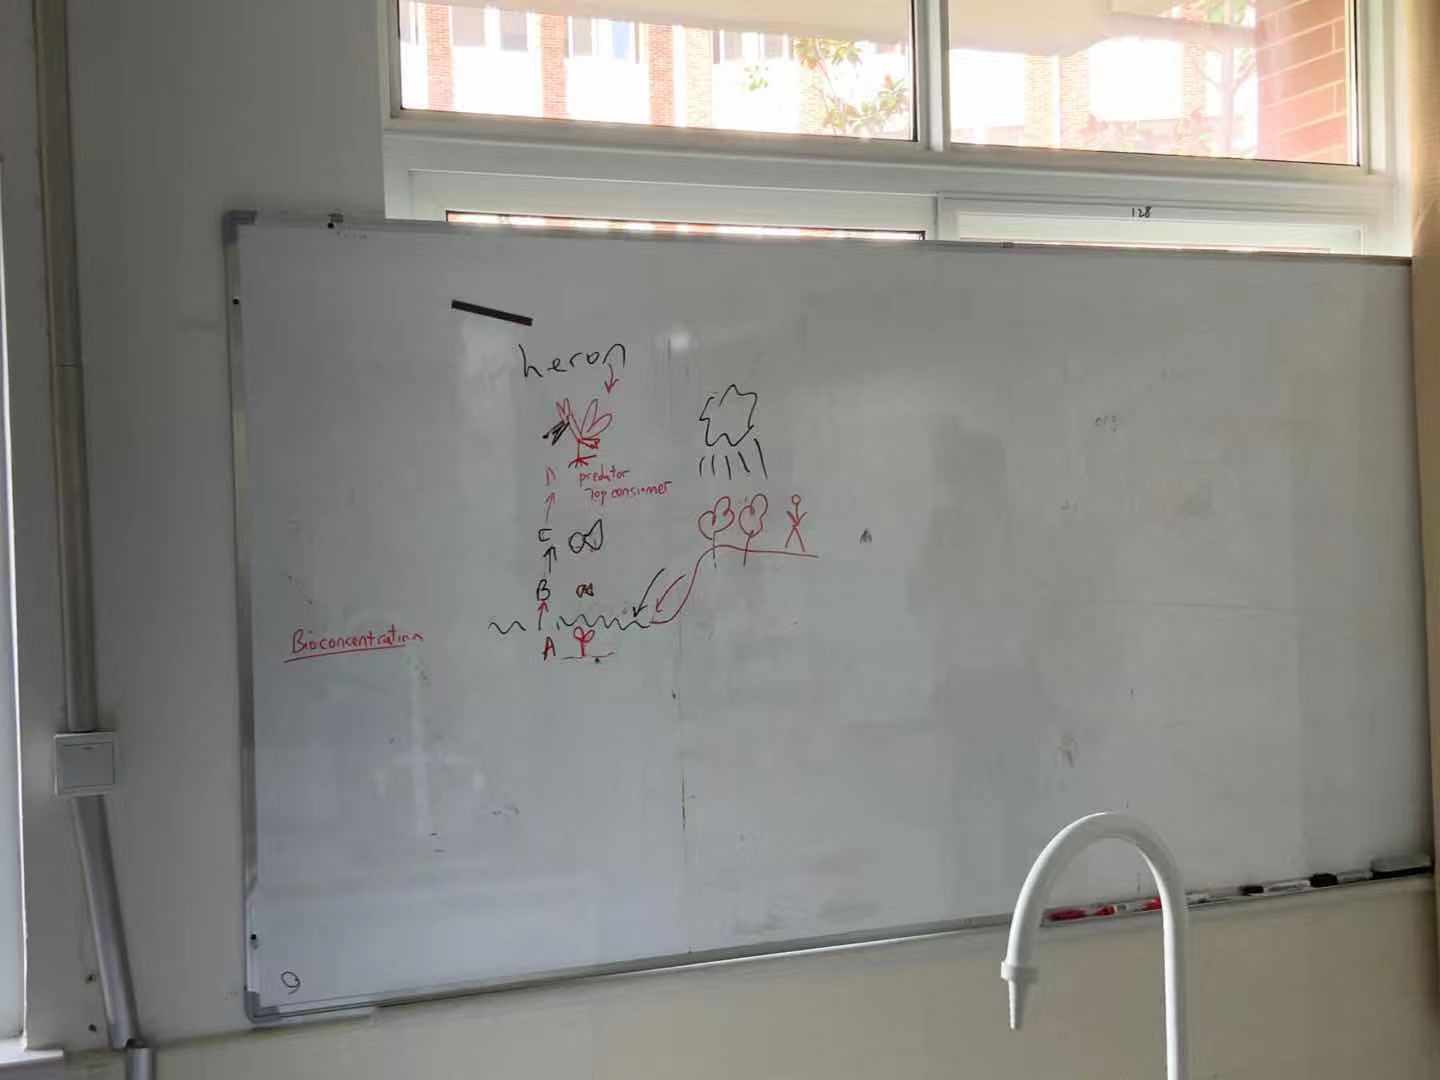 128
heron
D
predator
Top consumer
C
B
Bioconcentration
A